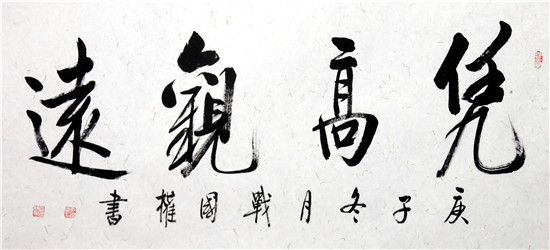 凭高觀遠
庚子冬月戰國權書